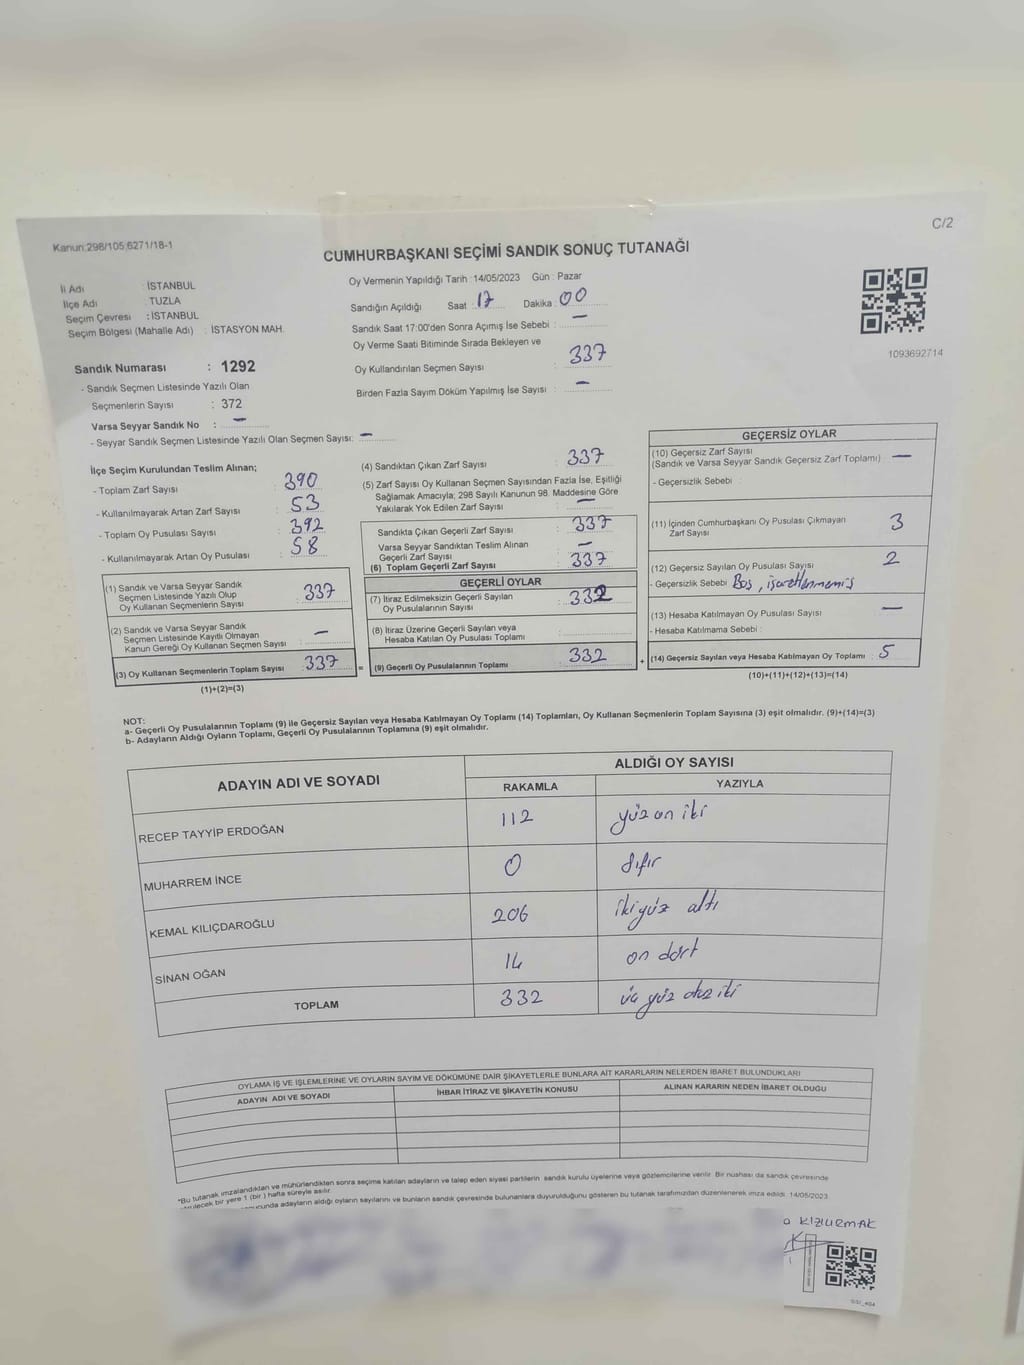 Kanun:298/105;6271/18-1
C/2
CUMHURBAŞKANI SEÇİMİ SANDIK SONUÇ TUTANAĞI
İl Adı : İSTANBUL
İlçe Adı : TUZLA
Seçim Çevresi : İSTANBUL
Seçim Bölgesi (Mahalle Adı) : İSTASYON MAH.
Oy Vermenin Yapıldığı Tarih :14/05/2023 Gün : Pazar
Sandığın Açıldığı Saat : 17 Dakika : 00
Sandık Saat 17:00'den Sonra Açımış İse Sebebi : —
Oy Verme Saati Bitiminde Sırada Bekleyen ve
Oy Kullandırılan Seçmen Sayısı : 337
Birden Fazla Sayım Döküm Yapılmış İse Sayısı : —
1093692714
Sandık Numarası : 1292
- Sandık Seçmen Listesinde Yazılı Olan
Seçmenlerin Sayısı : 372
Varsa Seyyar Sandık No : —
- Seyyar Sandık Seçmen Listesinde Yazılı Olan Seçmen Sayısı: —
İlçe Seçim Kurulundan Teslim Alınan;
- Toplam Zarf Sayısı : 390
- Kullanılmayarak Artan Zarf Sayısı : 53
- Toplam Oy Pusulası Sayısı : 392
- Kullanılmayarak Artan Oy Pusulası : 58
(1) Sandık ve Varsa Seyyar Sandık
Seçmen Listesinde Yazılı Olup
Oy Kullanan Seçmenlerin Sayısı : 337
(2) Sandık ve Varsa Seyyar Sandık
Seçmen Listesinde Kayıtlı Olmayan
Kanun Gereği Oy Kullanan Seçmen Sayısı : —
(3) Oy Kullanan Seçmenlerin Toplam Sayısı : 337
(1)+(2)=(3)
(4) Sandıktan Çıkan Zarf Sayısı : 337
(5) Zarf Sayısı Oy Kullanan Seçmen Sayısından Fazla İse, Eşitliği
Sağlamak Amacıyla; 298 Sayılı Kanunun 98. Maddesine Göre
Yakılarak Yok Edilen Zarf Sayısı : —
Sandıkta Çıkan Geçerli Zarf Sayısı : 337
Varsa Seyyar Sandıktan Teslim Alınan
Geçerli Zarf Sayısı : —
(6) Toplam Geçerli Zarf Sayısı : 337
GEÇERLİ OYLAR
(7) İtiraz Edilmeksizin Geçerli Sayılan
Oy Pusulalarının Sayısı : 332
(8) İtiraz Üzerine Geçerli Sayılan veya
Hesaba Katılan Oy Pusulası Toplamı :
= (9) Geçerli Oy Pusulalarının Toplamı : 332 +
GEÇERSİZ OYLAR
(10) Geçersiz Zarf Sayısı
(Sandık ve Varsa Seyyar Sandık Geçersiz Zarf Toplamı) : —
- Geçersizlik Sebebi :
(11) İçinden Cumhurbaşkanı Oy Pusulası Çıkmayan
Zarf Sayısı : 3
(12) Geçersiz Sayılan Oy Pusulası Sayısı : 2
- Geçersizlik Sebebi : Boş, işaretlenmemiş
(13) Hesaba Katılmayan Oy Pusulası Sayısı : —
- Hesaba Katılmama Sebebi :
(14) Geçersiz Sayılan veya Hesaba Katılmayan Oy Toplamı : 5
(10)+(11)+(12)+(13)=(14)
NOT:
a- Geçerli Oy Pusulalarının Toplamı (9) ile Geçersiz Sayılan veya Hesaba Katılmayan Oy Toplamı (14) Toplamları, Oy Kullanan Seçmenlerin Toplam Sayısına (3) eşit olmalıdır. (9)+(14)=(3)
b- Adayların Aldığı Oyların Toplamı, Geçerli Oy Pusulalarının Toplamına (9) eşit olmalıdır.
ADAYIN ADI VE SOYADI ALDIĞI OY SAYISI
RAKAMLA YAZIYLA
RECEP TAYYİP ERDOĞAN 112 yüz on iki
MUHARREM İNCE 0 sıfır
KEMAL KILIÇDAROĞLU 206 ikiyüz altı
SİNAN OĞAN 14 on dört
TOPLAM 332 üç yüz otuz iki
OYLAMA İŞ VE İŞLEMLERİNE VE OYLARIN SAYIM VE DÖKÜMÜNE DAİR ŞİKAYETLERLE BUNLARA AİT KARARLARIN NELERDEN İBARET BULUNDUKLARI
ADAYIN ADI VE SOYADI İHBAR İTİRAZ VE ŞİKAYETİN KONUSU ALINAN KARARIN NEDEN İBARET OLDUĞU
*Bu tutanak imzalandıktan ve mühürlendikten sonra seçime katılan adayların ve talep eden siyasi partilerin sandık kurulu üyelerine veya gözlemcilerine verilir. Bir nüshası da sandık çevresinde
bir yere 1 (bir) hafta süreyle asılır.
adayların aldığı oyların sayılarını ve bunların sandık çevresinde bulunanlara duyurulduğunu gösteren bu tutanak tarafımızdan düzenlenerek imza edildi. 14/05/2023
KIZILIRMAK